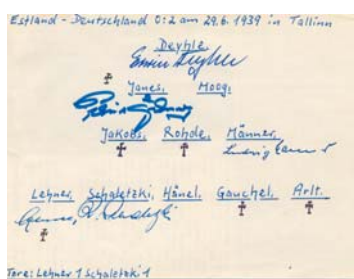 Estland - Deutschland 0:2 am 29.6.1939 in Tallinn
Deyhle.
Erwin Deyhle
Janes. Moog.
Jakobs. Rohde. Männer.
Ludwig
Lehner. Schaletzki. Hänel. Gauchel. Arlt.
Tore: Lehner 1 Schaletzki 1